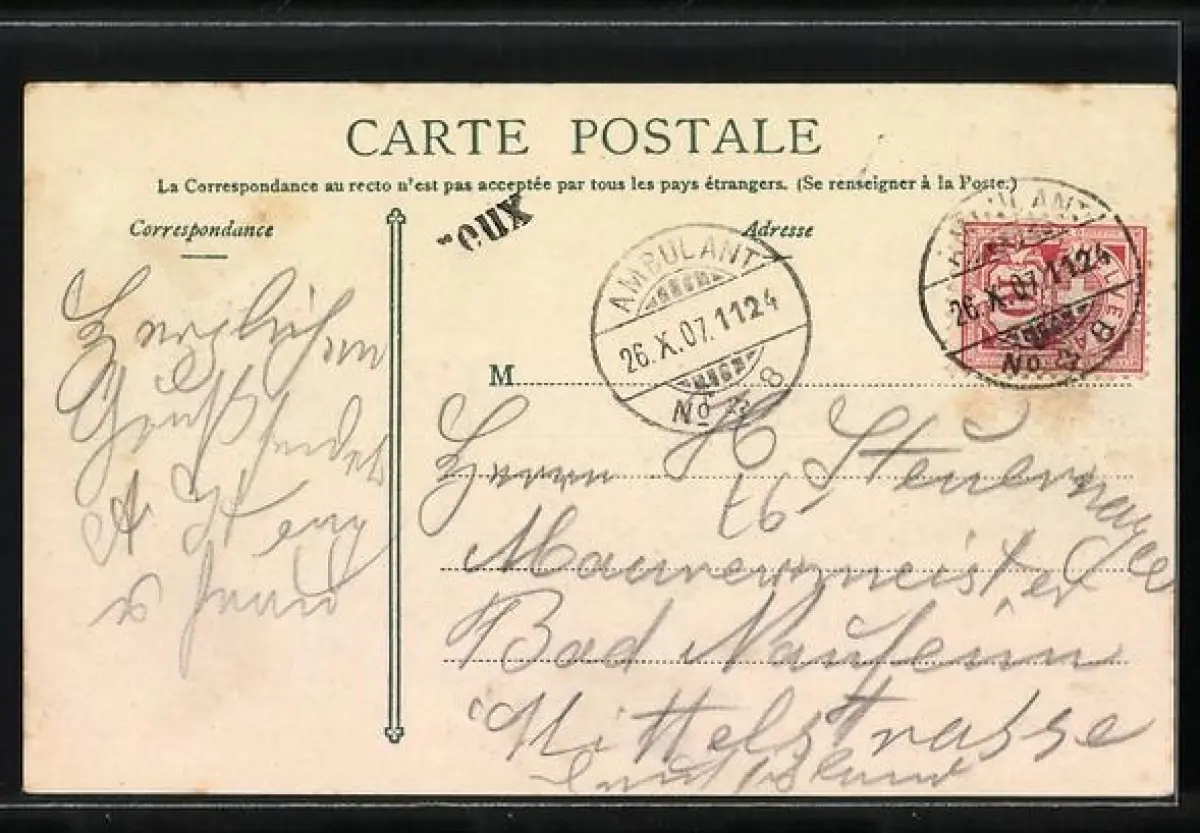 CARTE POSTALE
La Correspondance au recto n'est pas acceptée par tous les pays étrangers. (Se renseigner à la Poste.)
Correspondance
Adresse
EUX
AMBULANT
26.X.07.1124
No
AMBULANT
26.X.07.1124
No
HELVETIA
M
Herzlichen
Gruß sendet
A
Herrn H
Maurermeister
Bad Nauheim
Mittelstrasse